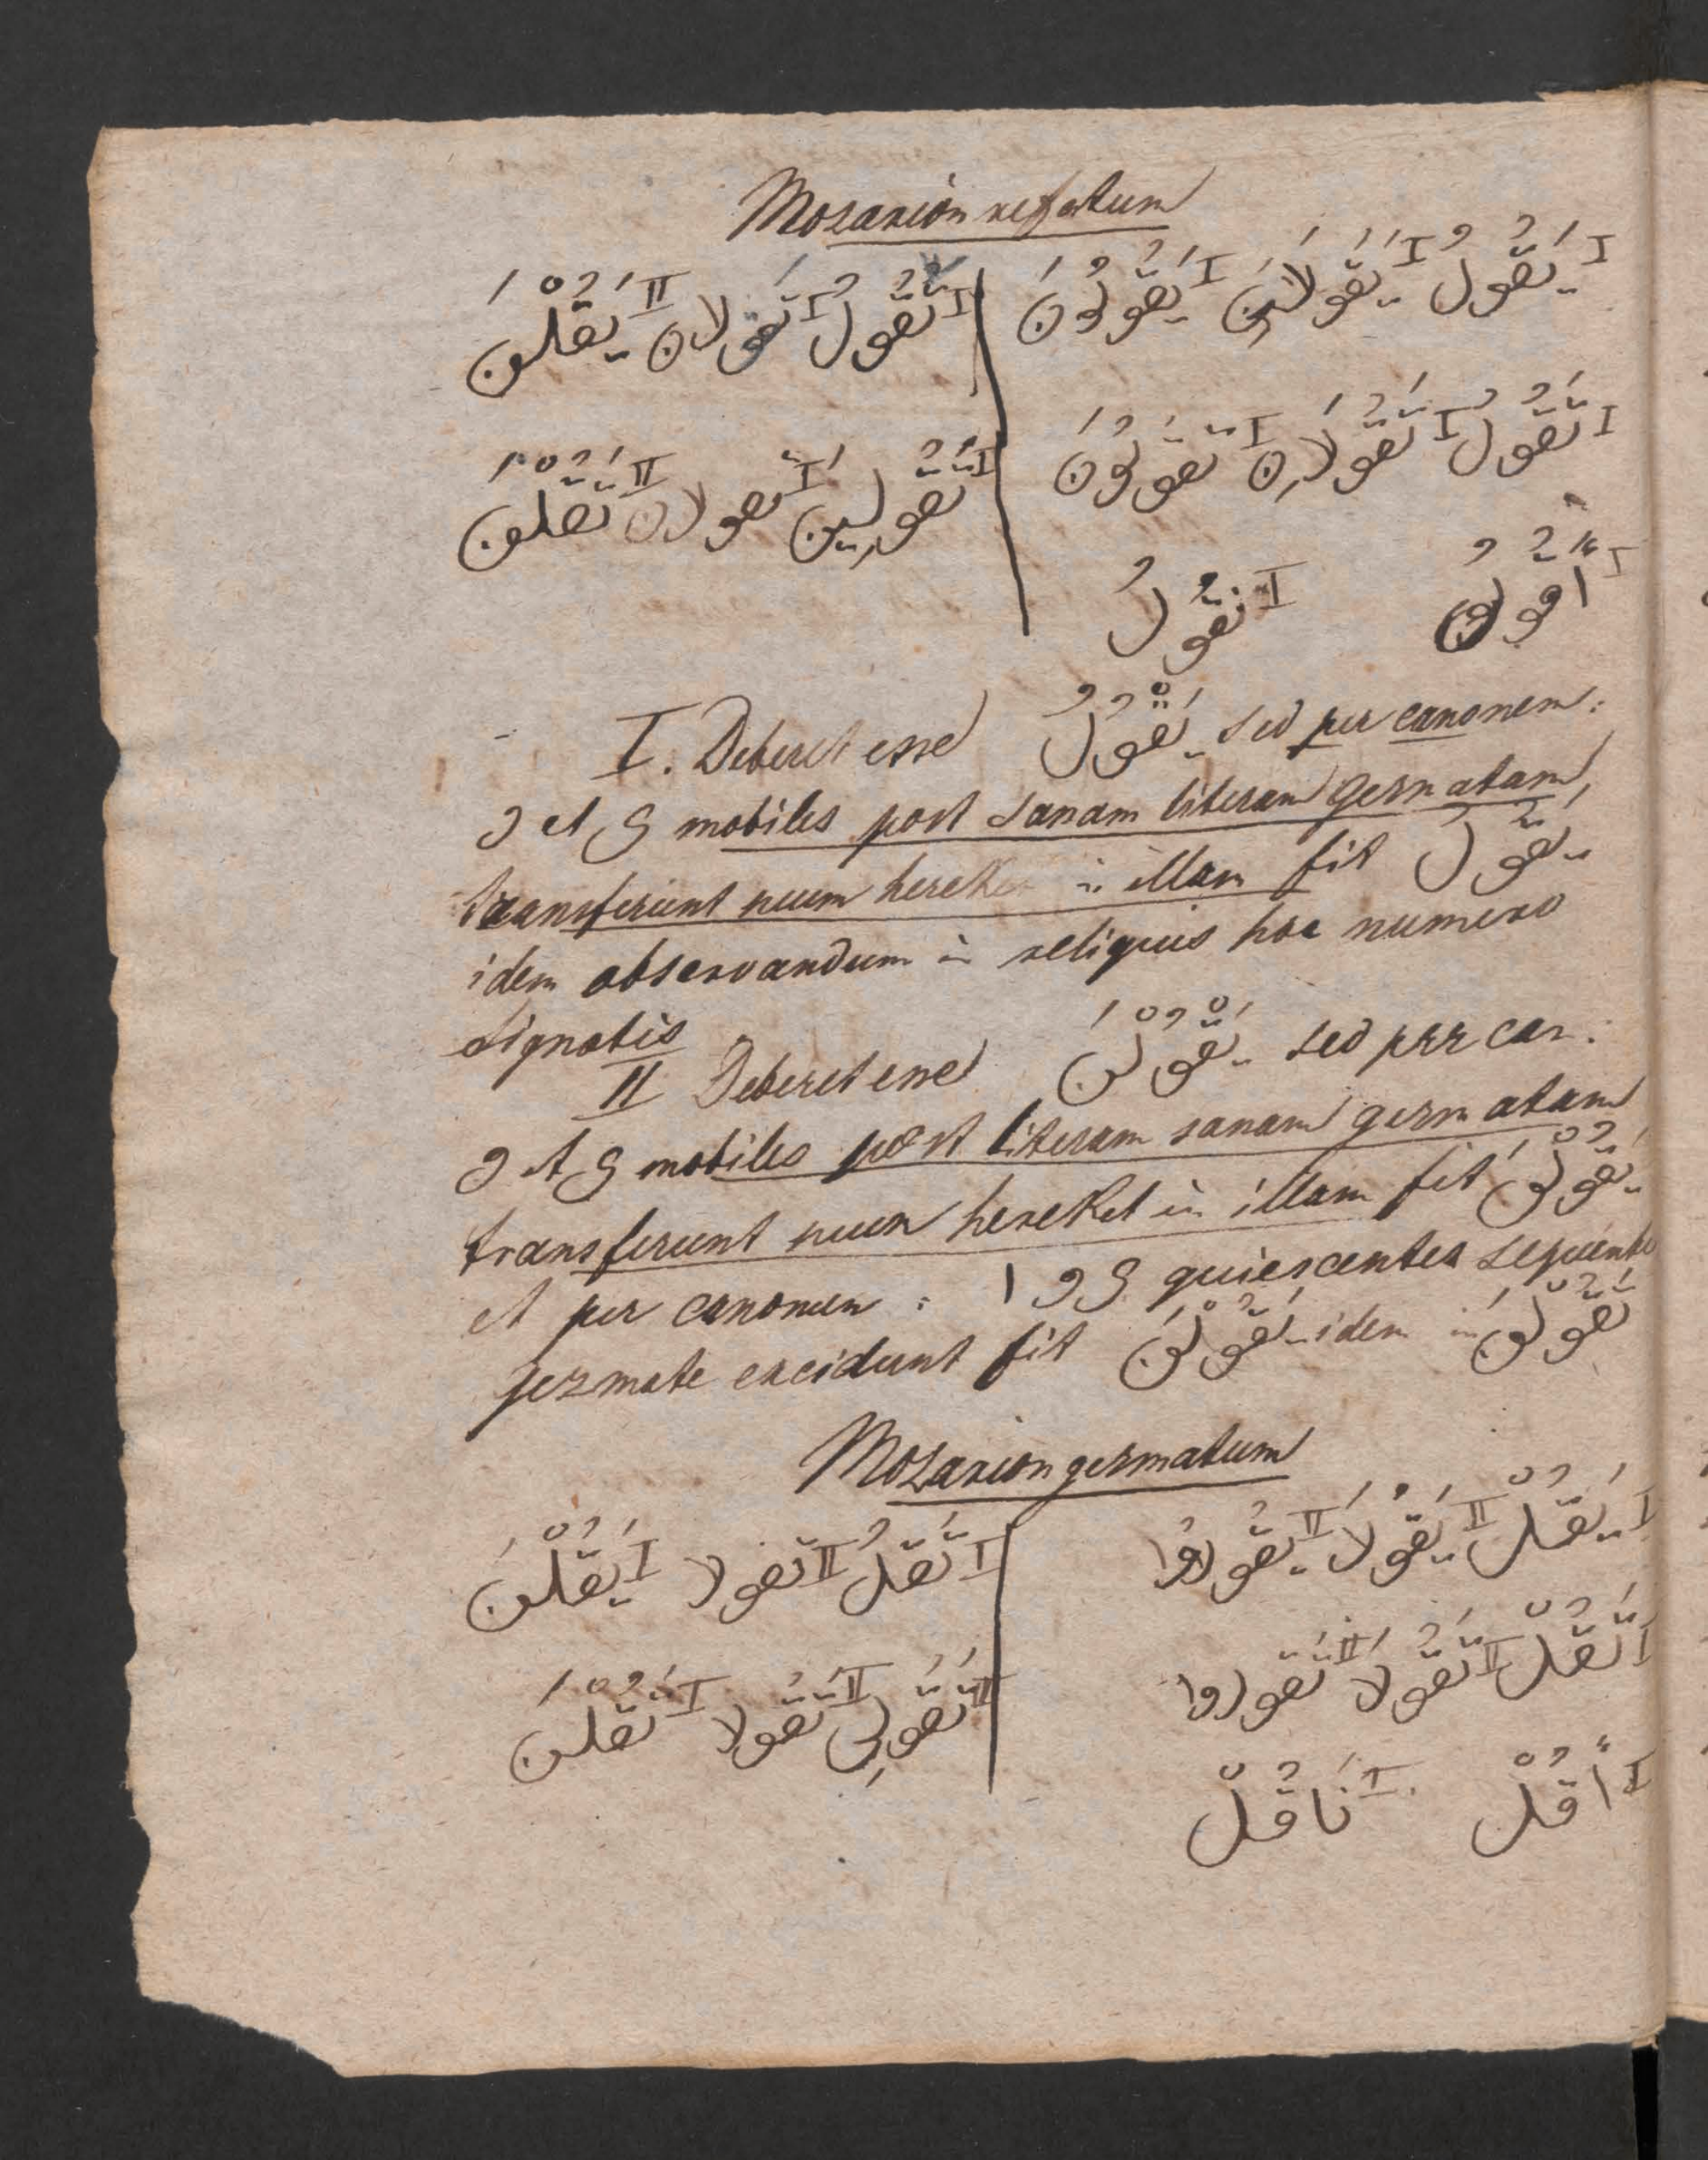 Mozarion refatum
I يَقُولُ I يَقُولَانِ I يَقُولُونَ | I تَقُولُ I تَقولان II يَقُلْنَ
I تَقُولُ I تَقُولَانِ I تقولُونَ | I تَقُولِينَ I تَقولان II تَقُلْنَ
I أَقُولُ I نَقُولُ
I. Deberet esse يَقْوُلُ sed per canonem:
و et ي mobiles post sanam literam gezmatam
transferunt suum hereket in illam fit يَقُول
idem observandum in reliquis hoc numero
signatis
II Deberet esse يَقْوُلْنَ sed per can:
و et ي mobiles post literam sanam gezmatam
transferunt suum hereket in illam fit يَقُوْلْنَ
et per canonem: ا و ي quiescentes sequente
gezmate excidunt fit يَقُوْلْنَ idem in تَقُوْلْنَ
Mozarion gezmatum
I يَقُلْ II يَقُولَا II يَقُولُوا | I تَقُلْ II تقولا I يَقُلْنَ
I تَقُلْ II تَقُولَا II تَقولوا | II تَقُولِي II تَقُولا I تَقُلْنَ
I أَقُلْ I نَاقُلْ